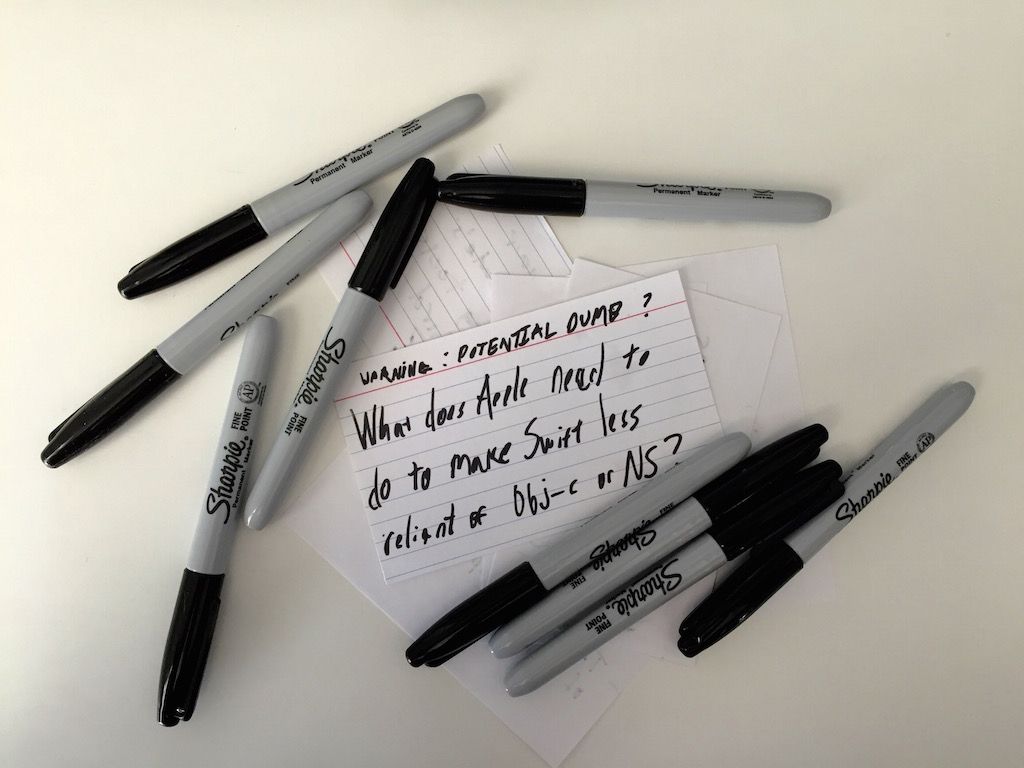 WARNING: POTENTIAL DUMB?
What does Apple need to
do to make Swift less
reliant of Obj-c or NS?
Sharpie
Permanent Marker
Sharpie
Permanent Marker
Sharpie
FINE POINT
Sharpie
FINE
POINT
AP
Sharpie
Permanent Marker
Sharpie
FINE
Sharpie
FINE
POINT
Sharpie
FINE
POINT
AP